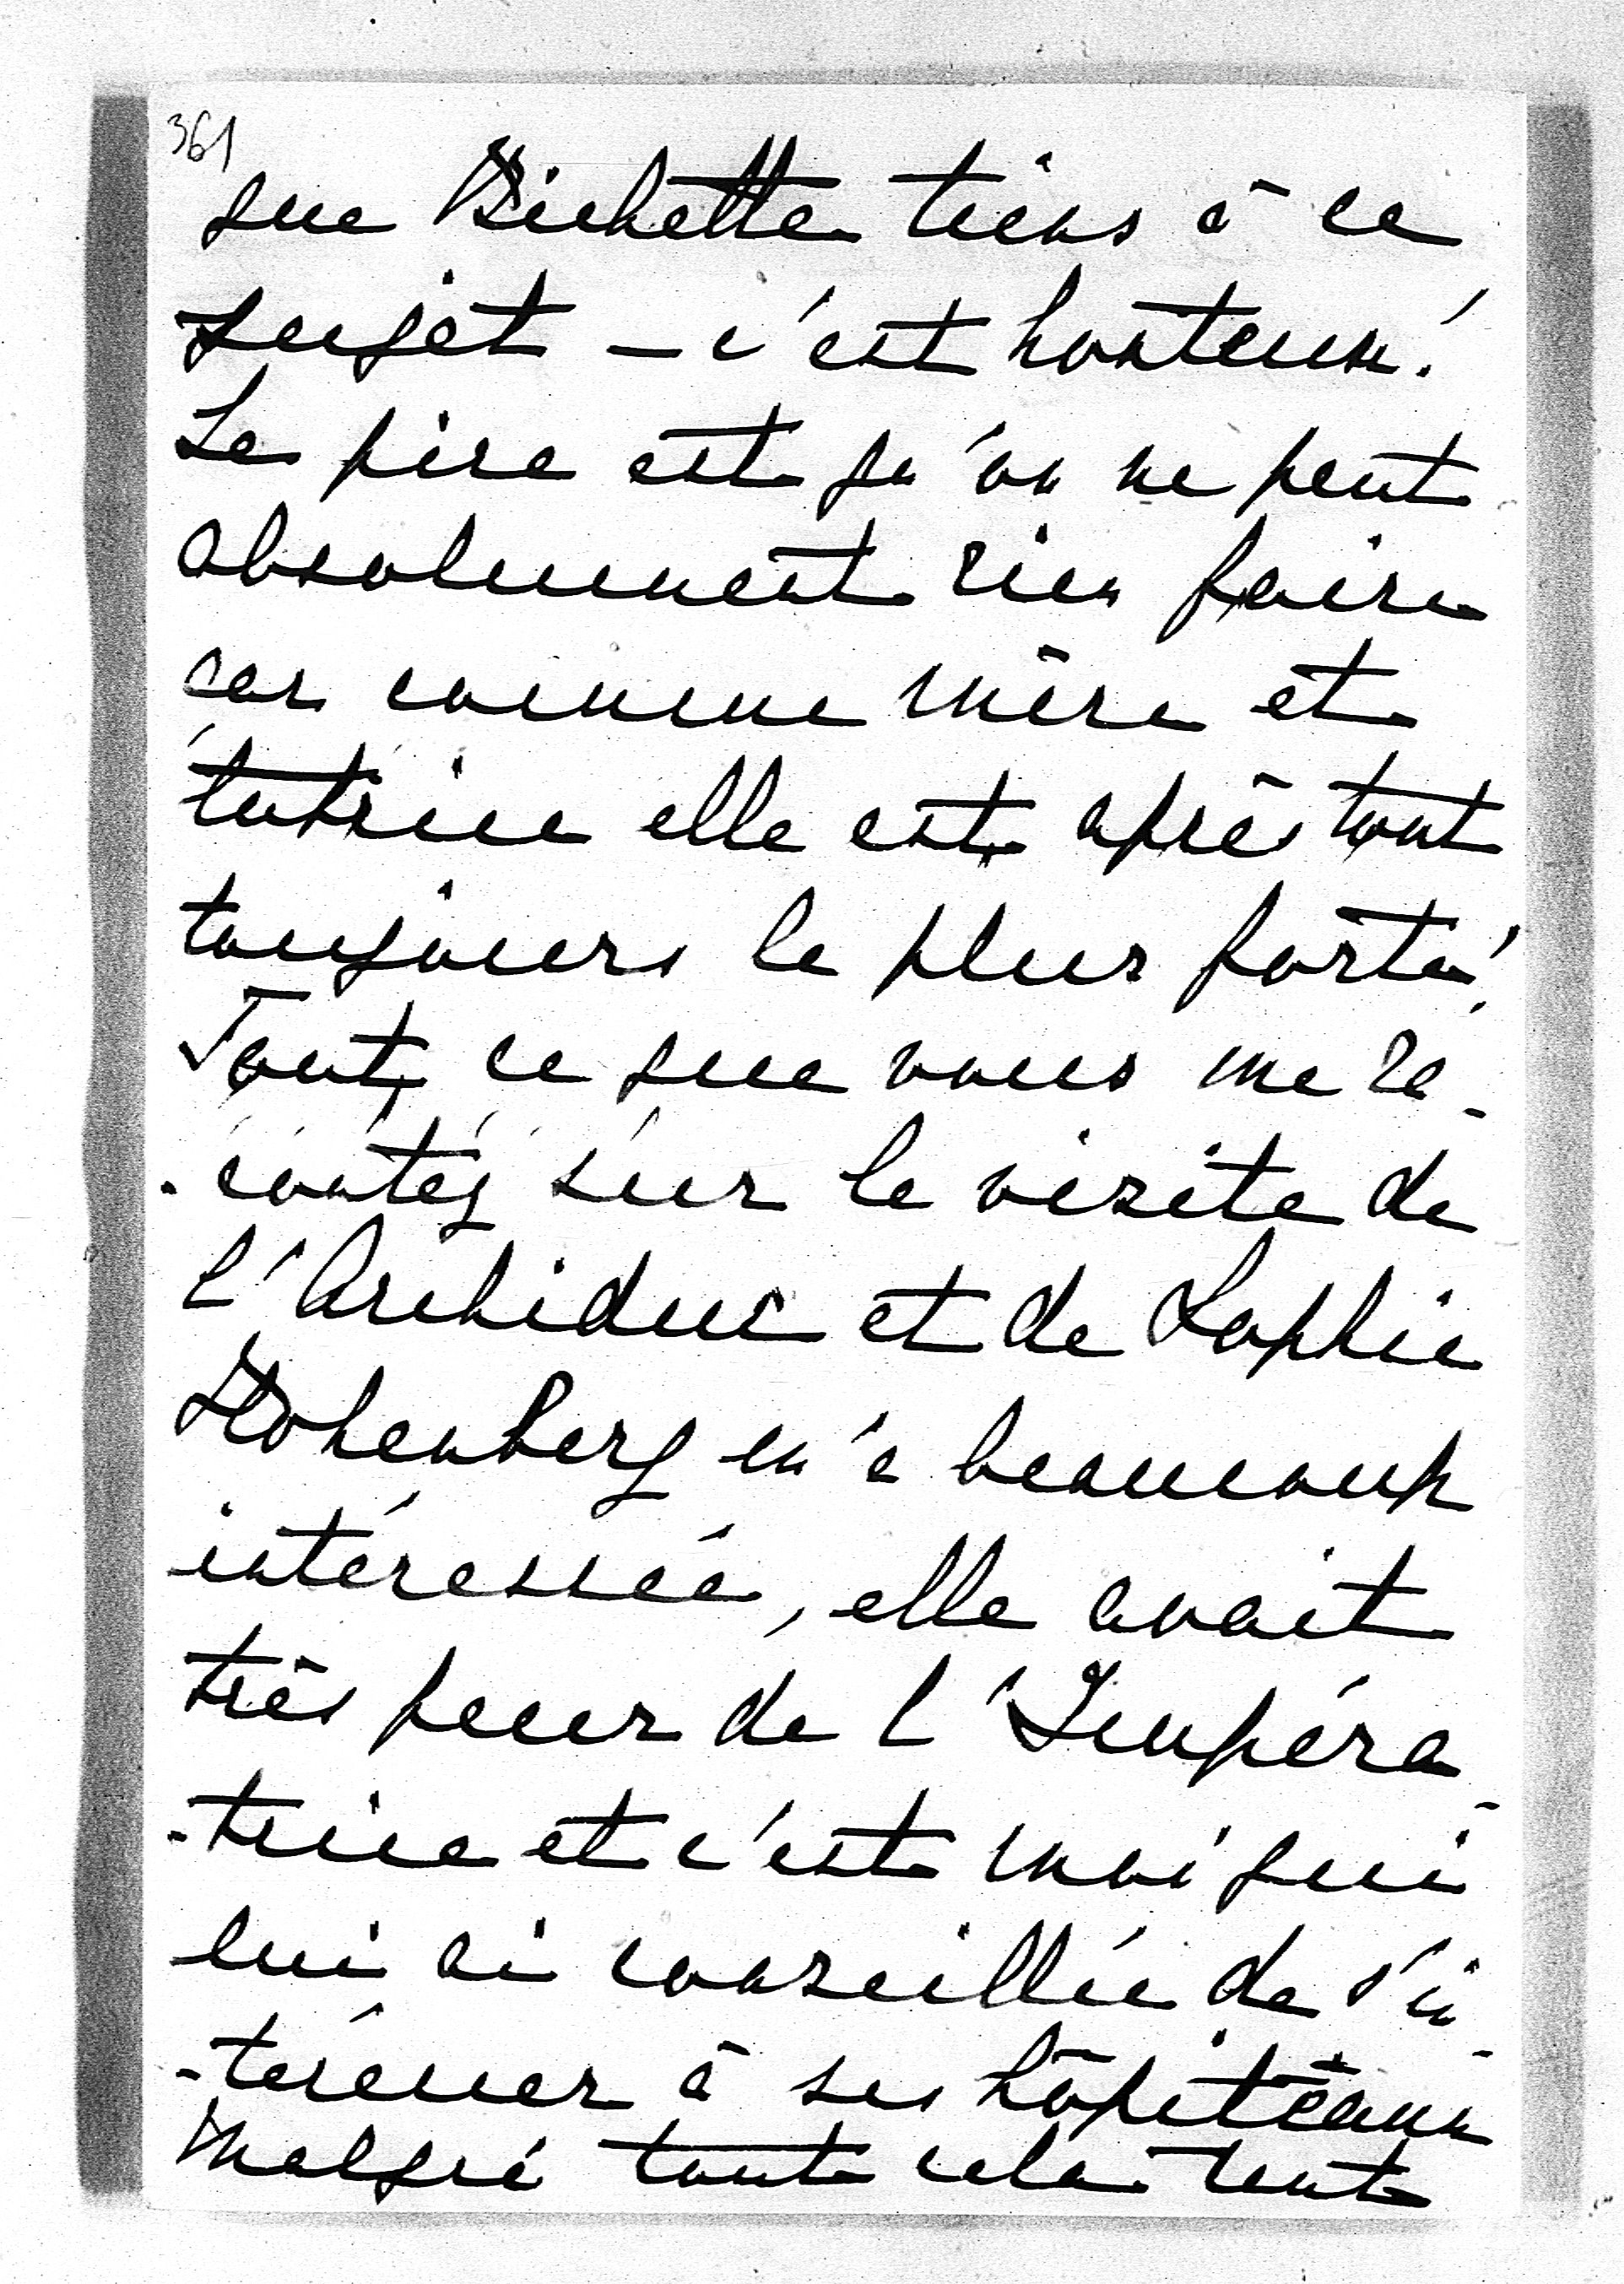 361
que Bichette tiens à ce
sujet – c'est honteux!
Le pire est qu'on ne peut
absolument rien faire
car comme mère et
tutrice elle est après tout
toujours la plus forte!
Tout ce que vous me ra-
-contéz sur la visite de
l'Archiduc et de Sophie
Hohenberg m'a beaucoup
intéressée, elle avait
très peur de l'Impéra-
-trice et c'est moi qui
lui ai conseillée de s'in-
-téresser à ses hôpiteaux
Malgré toute cela tout